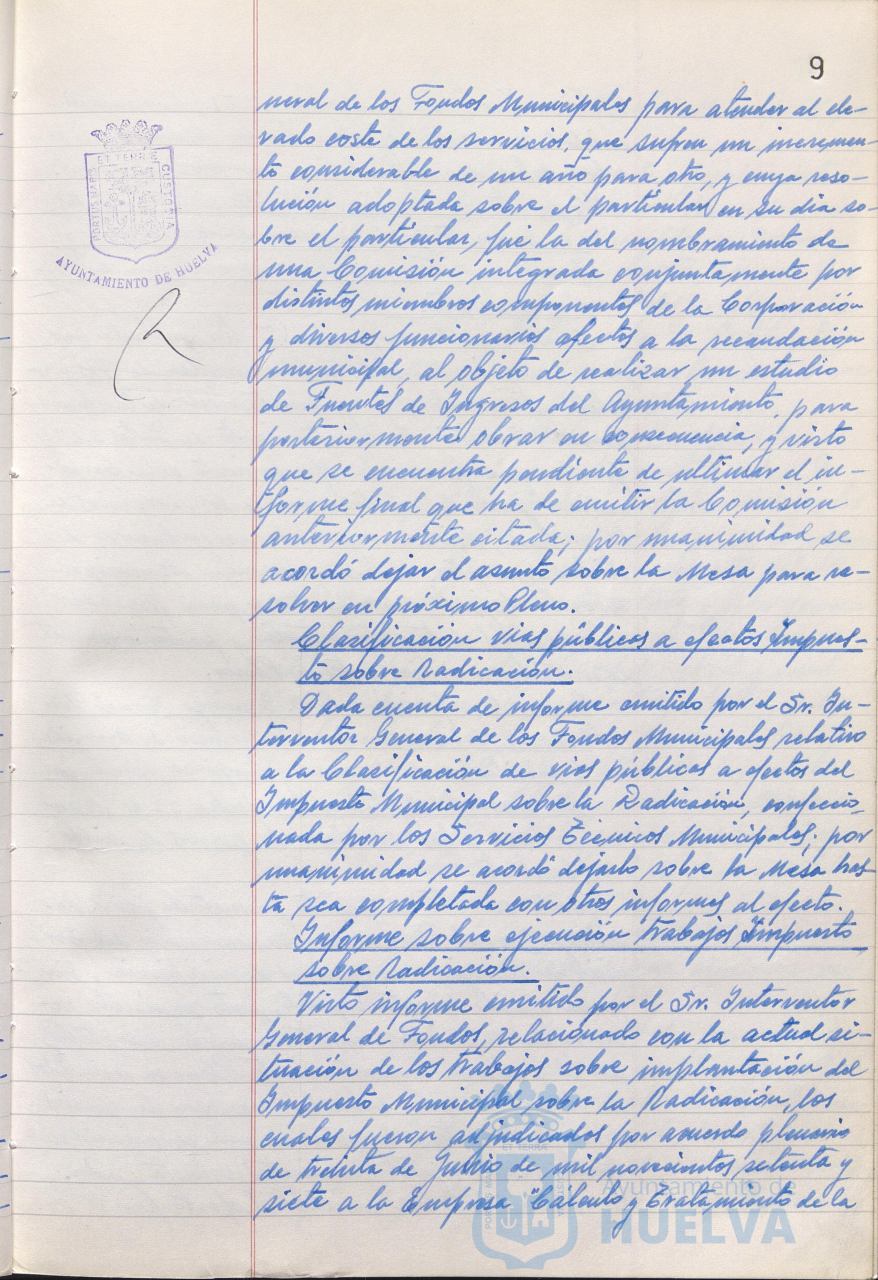 9
neral de los Fondos Municipales para atender al ele-
vado coste de los servicios, que sufren un incremen-
to considerable de un año para otro, y cuya reso-
lución adoptada sobre el particular en su dia so-
bre el particular, fué la del nombramiento de
una Comisión integrada conjuntamente por
distintos miembros componentes de la Corporación
y diversos funcionarios afectos a la recaudación
municipal, al objeto de realizar un estudio
de Fuentes de Ingresos del Ayuntamiento, para
posteriormente obrar en consecuencia, y visto
que se encuentra pendiente de ultimar el in-
forme final que ha de emitir la Comisión
anteriormente citada; por unanimidad se
acordó dejar el asunto sobre la Mesa para re-
solver en próximo Pleno.
Clasificación vias públicas a efectos Impues-
to sobre Radicación.
Dada cuenta de informe emitido por el Sr. In-
terventor General de los Fondos Municipales relativo
a la Clasificación de vias públicas a efectos del
Impuesto Municipal sobre la Radicación, confeccio-
nada por los Servicios Técnicos Municipales; por
unanimidad se acordó dejarlo sobre la Mesa has-
ta sea completada con otros informes al efecto.
Informe sobre ejecución trabajos Impuesto
sobre Radicación.
Visto informe emitido por el Sr. Interventor
General de Fondos, relacionado con la actual si-
tuación de los trabajos sobre implantación del
Impuesto Municipal sobre la Radicación, los
cuales fueron adjudicados por acuerdo plenario
de treinta de Junio de mil novecientos setenta y
siete a la Empresa "Cálculo y Tratamiento de la
PORTUS MARIS ET TERRÆ CUSTODIA
AYUNTAMIENTO DE HUELVA
Ayuntamiento de
HUELVA